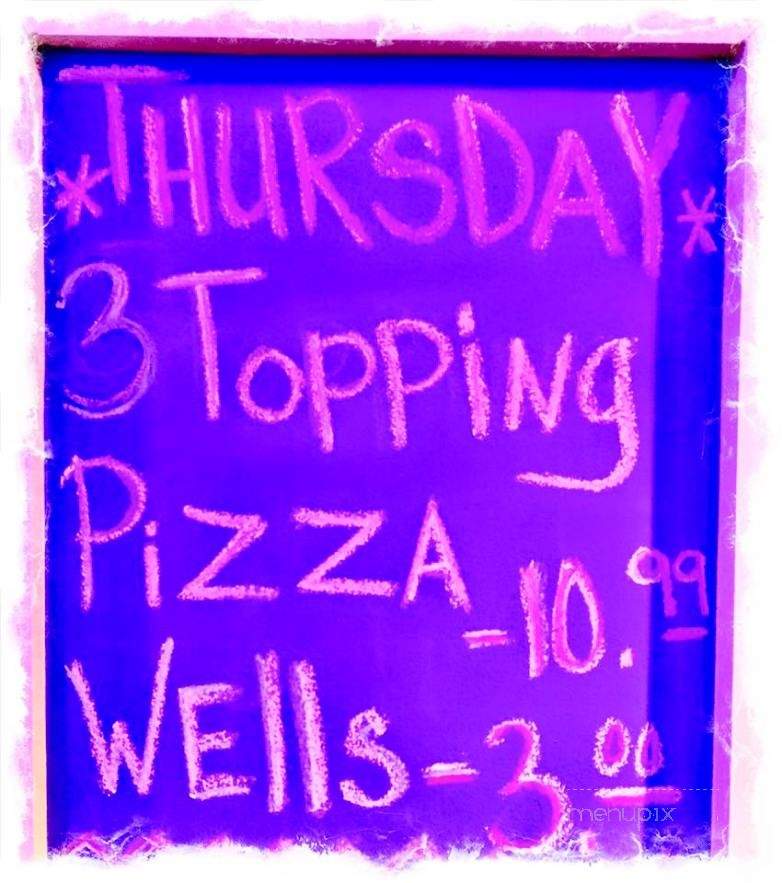 *THURSDAY*
3 Topping
PizzA -10.99
WElls -3.00
menupix